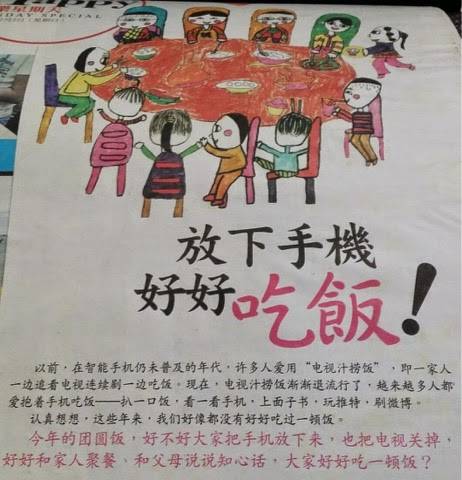 ppy
星期天
NDAY SPECIAL
放下手機
好好吃飯！
以前，在智能手机仍未普及的年代，许多人爱用“电视汁捞饭”，即一家人
一边追看电视连续剧一边吃饭。现在，电视汁捞饭渐渐退流行了，越来越多人都
爱抱着手机吃饭——扒一口饭，看一看手机，上面子书，玩推特，刷微博。
认真想想，这些年来，我们好像都没有好好吃过一顿饭。
今年的团圆饭，好不好大家把手机放下来，也把电视关掉，
好好和家人聚餐、和父母说说知心话，大家好好吃一顿饭？